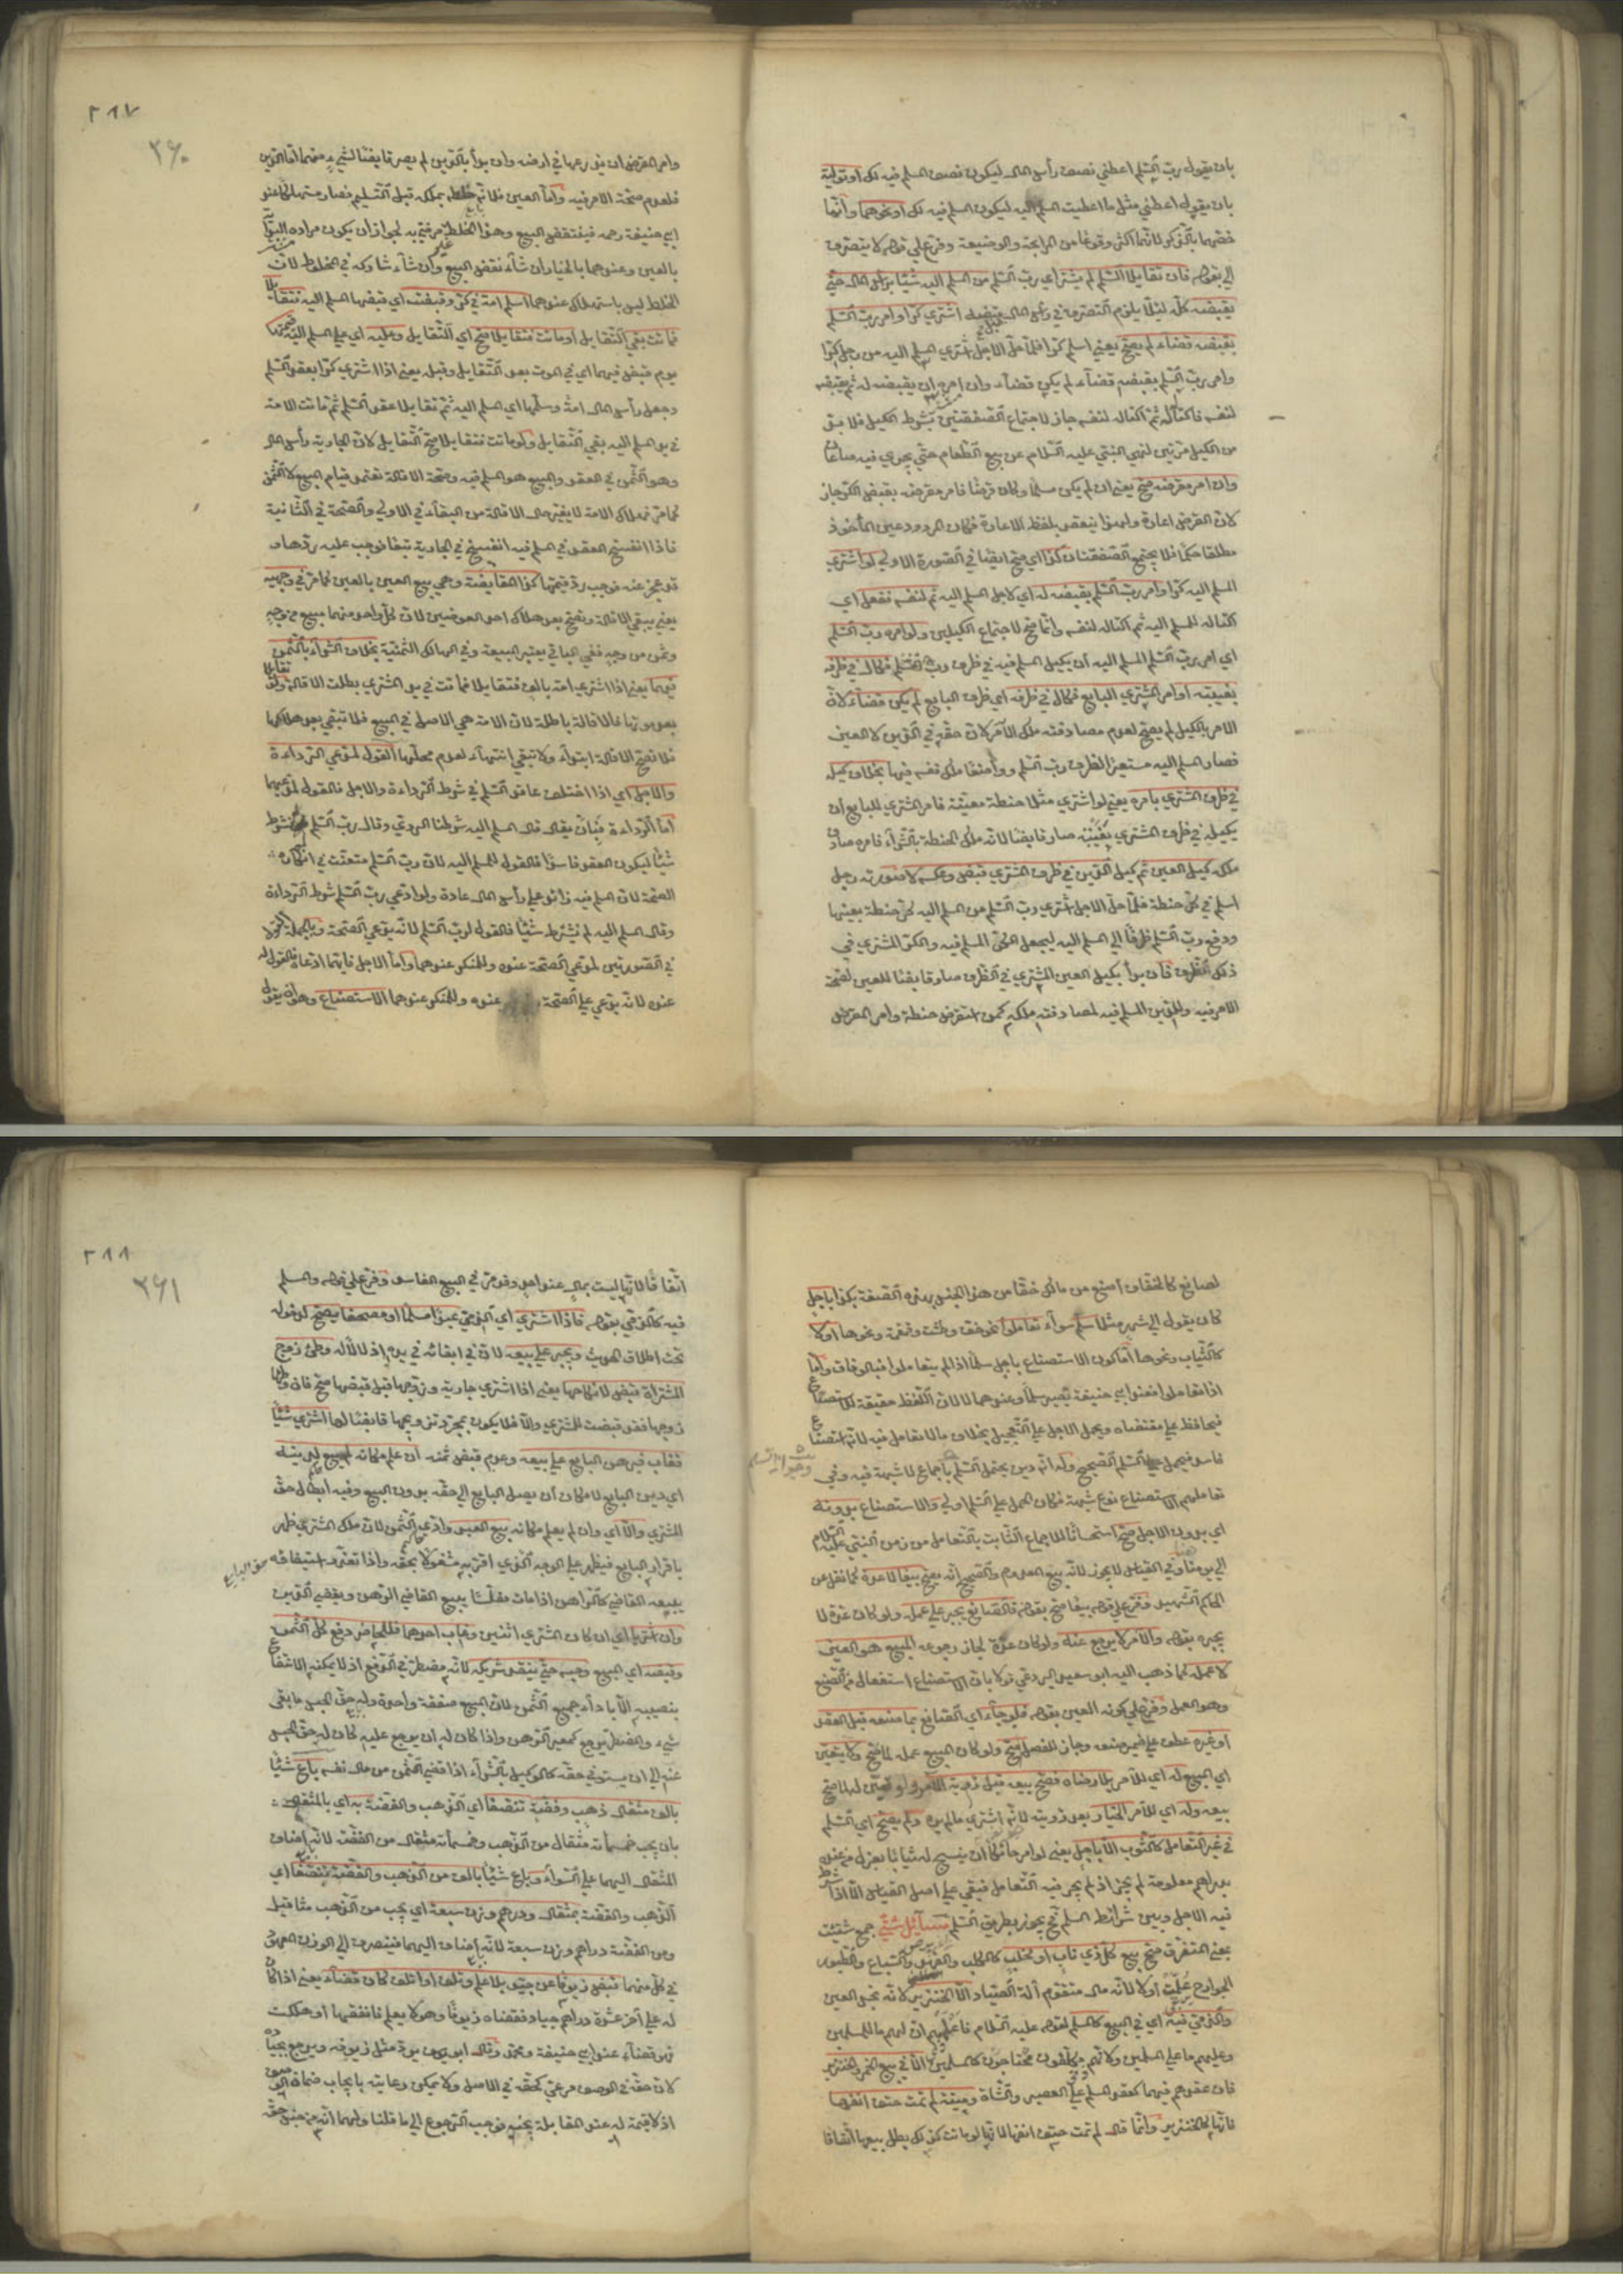 بان يقول رب السلم اعطني نصف رأس المال ليكون نصف المسلم فيه لك او تولية
بان يقول اعطني مثل ما اعطيت المسلم اليه ليكون المسلم فيه لك او نحوهما وانما
خصهما بالذكر لانهما اكثر وقوعا من المرابحة والوضيعة وفرع على قوله لا يتصرف
الى بقوله فان تقايلا السلم لم يشتر اي رب السلم من المسلم اليه شيئا برأس المال حتى
يقبضه كله لئلا يلزم التصرف في رأس المال قبل قبضه اشترى كرا وامر رب السلم
بقبضه قضاء لم يصح يعني اسلم كرا فلما حل الاجل اشترى المسلم اليه من رجل كرا
وامر رب السلم بقبضه قضاء لم يكن قضاء وان امره ان يقبضه له ثم يقبضه
لنفسه فاكتاله ثم اكتاله لنفسه جاز لاجتماع الصفقتين بشرط الكيل فلا بد
من الكيل مرتين لنهي النبي عليه السلام عن بيع الطعام حتى يجري فيه صاعان
وان امر مقرضه صح يعني ان لم يكن سلما وكان قرضا فامر مقرضه بقبض الكر جاز
لان القرض اعارة ولهذا ينعقد بلفظ الاعارة فكان المردود عين المأخوذ
مطلقا حكما فلا يجتمع الصفقتان كذا اي صح ايضا في الصورة الاولى لو اشترى
المسلم اليه كرا وامر رب السلم بقبضه له اي لاجل المسلم اليه ثم لنفسه ففعل اي
اكتاله للمسلم اليه ثم اكتاله لنفسه وانما صح لاجتماع الكيلين ولو امره رب السلم
اي امر رب السلم المسلم اليه ان يكيل المسلم فيه في ظرف رب السلم فكال في ظرفه
بغيبته او امر المشتري البايع فكال في ظرفه اي ظرف البايع لم يكن قضاء لان
الامر بالكيل لم يصح لعدم مصادفته ملك الآمر لان حقه في الدين لا العين
فصار المسلم اليه مستعير الظرف رب السلم وواضعا ملك نفسه فيها بخلاف كيله
في ظرف المشتري بامره يعني لو اشترى مثلا حنطة معينة فامر المشتري للبايع ان
يكيله في ظرف المشتري بغيبته صار قابضا لانه ملك الحنطة بالشراء فامره صادف
ملكه كيل العين ثم كيل الدين في ظرف المشتري قبض وعكسه لا صورته رجل
اسلم في كر حنطة فلما حل الاجل اشترى رب السلم من المسلم اليه كر حنطة بعينها
ودفع رب السلم ظرفا الى المسلم اليه ليجعل الكر المسلم فيه والكر المشتري في
ذلك الظرف فان بدأ بكيل العين المشترى في الظرف صار قابضا للعين لصحة
الامر فيه وللدين المسلم فيه لمصادفته ملكه كمن استقرض حنطة وامر المقرض
٢٨٧
٣٦٠
وامر المقرض ان يزرعها في ارضه وان بدأ بالدين لم يصر قابضا لشيء منهما اما الدين
فلعدم صحة الامر فيه واما العين فلانه خلطه بملكه قبل التسليم فصار مستهلكا عند
ابي حنيفة رحمه فينتقض البيع وهذا الخلط غير مرضي به لجواز ان يكون مراده البداءة
بالعين وعندهما بالخيار ان شاء نقض البيع وان شاء شاركه في المخلوط لان
الخلط ليس باستهلاك عندهما اسلم امة في كر وقبضت اي قبضها المسلم اليه فتقايلا
فماتت بقي التقايل او ماتت فتقايلا صح اي التقايل وعليه اي على المسلم اليه قيمتها
يوم قبض فيهما اي في الموت بعد التقايل وقبله يعني اذا اشترى كرا بعقد السلم
وجعل رأس المال امة وسلمها اي المسلم اليه ثم تقايلا عقد السلم ثم ماتت الامة
في يد المسلم اليه بقي التقايل ولو ماتت فتقايلا صح التقايل لان الجارية رأس المال
وهو الثمن في العقد والمبيع هو المسلم فيه وصحة الاقالة تعتمد قيام المبيع لا الثمن
كما مر فهلاك الامة لا يغير حال الاقالة من البقاء في الاولى والصحة في الثانية
فاذا انفسخ العقد في المسلم فيه انفسخ في الجارية تبعا فوجب عليه ردها وقد
عجز عنه فوجب رد قيمتها كذا المقايضة وهي بيع العين بالعين كما مر في وجهيه
يعني يبقى الاقالة وتصح بعد هلاك احد العوضين لان كل واحد منهما مبيع من وجه
وثمن من وجه ففي الباقي يعتبر المبيعية وفي الهالك الثمنية بخلاف الشراء بالثمن
فيهما يعني اذا اشترى امة بالف فتقايلا فماتت في يد المشتري بطلت الاقالة ولو تقايلا
بعد موتها فالاقالة باطلة لان الامة هي الاصل في البيع فلا تبقى بعد هلاكها
فلا تصح الاقالة ابتداء ولا تبقى انتهاء لعدم محلها القول لمدعي الرداءة
والاجل اي اذا اختلف عاقد السلم في شرط الرداءة والاجل فالقول لمدعيهما
اما الرداءة فبان يقال قال المسلم اليه شرطنا الردي وقال رب السلم لم نشترط
شيئا ليكون العقد فاسدا فالقول للمسلم اليه لان رب السلم متعنت في انكاره
الصحة لان المسلم فيه زائد على رأس المال عادة ولو ادعى رب السلم شرط الرداءة
وقال المسلم اليه لم نشترط شيئا فالقول لرب السلم لانه يدعي الصحة وبالجملة القول
في الصورتين لمدعي الصحة عنده وللمنكر عندهما واما الاجل فايهما ادعاه فالقول له
عنده لانه يدعي على الصحة عنده وللمنكر عندهما الاستصناع وهو ان يقول
لصانع كالخفاف اصنع من مالك خفا من هذا الجنس بهذه الصفة بكذا باجل
كان يقول الى شهر مثلا سلم سواء تعاملوا نحو خف وطست وقمقمة ونحوها اولا
كالثياب ونحوها اما كون الاستصناع باجل سلما اذا لم يتعاملوا فبالوفاق واما
اذا تعاملوا فعند ابي حنيفة يصير سلما وعندهما لا لان اللفظ حقيقة للاستصناع
فيحافظ على مقتضاه ويحمل الاجل على التعجيل بخلاف ما لا تعامل فيه لانه استصناع
فاسد فيحمل على السلم الصحيح وله انه دين يحتمل السلم باجماع لا شبهة فيه وفي
تعاملهم الاستصناع نوع شبهة فكان الحمل على السلم اولى والاستصناع بدونه
اي بدون الاجل صح استحسانا للاجماع الثابت بالتعامل من زمن النبي عليه السلام
الى يومنا هذا وفي القياس لا يجوز لانه بيع المعدوم والصحيح انه يصح بيعا لا عدة كما نقل عن
الحاكم الشهيد ففرع على قوله بيعا صح بقوله فالصانع يجبر على عمله ولو كان عدة لا
يجبره بقوله والآمر لا يرجع عنه ولو كان عدة لجاز رجوعه المبيع هو العين
لا عمله كما ذهب اليه ابو سعيد البردعي قولا بان الاستصناع استفعال من الصنع
وهو العمل وفرع على كونه العين بقوله فلو جاء اي الصانع بما صنعه قبل العقد
او غيره عطف على ضمير صنعه وجاز للفصل صح ولو كان المبيع عمله لما صح ولا يتعين
اي المبيع له اي للآمر بلا رضاه فصح بيعه قبل رؤية الآمر ولو تعين له لما صح
بيعه وله اي للآمر الخيار بعد رؤيته لانه اشترى ما لم يره ولم يصح اي السلم
في غير التعامل كالثوب الا باجل يعني لو امر حائكا ان ينسج له ثيابا بغزل من عنده
بدراهم معلومة لم يجز اذ لم يجر فيه التعامل فبقي على اصل القياس الا اذا شرط
فيه الاجل وبين شرائط السلم فح يجوز بطريق السلم مسائل شتى جمع شتيت
بمعنى المتفرق صح بيع كل ذي ناب او مخلب كالكلب والفهد والسباع والطيور
الجوارح علمت او لا لانه مال متقوم آلة الصيد الا الخنزير لانه نجس العين
والذمي فيه اي في البيع كالمسلم لقوله عليه السلام فاعلمهم ان لهم ما للمسلمين
وعليهم ما على المسلمين ولانهم مكلفون محتاجون كالمسلمين الا في بيع الخمر والخنزير
فان عقدهم فيهما كعقد المسلم على العصير والشاة وميتة لم تمت حتف انفها
فانها كالخنزير وانما قال لم تمت حتف انفها لانها لو ماتت كذلك بطل بيعها اتفاقا
٢٨٨
٣٦١
اتفاقا لانها ليست بمال عند احد وقد مر في البيع الفاسد وفرع على قوله والمسلم
فيه كالذمي بقوله فاذا اشترى اي الذمي عبدا مسلما او مصحفا يصح لدخوله
تحت اطلاق الحديث ويجبر على بيعه لان في ابقائه في يده اذلالا له وطئ زوج
المشتراة قبض لا نكاحها يعني اذا اشترى جارية وزوجها قبل قبضها صح فان وطئها
زوجها فقد قبضت المشتري والا فلا يكون بمجرد تزويجها قابضا لها اشترى شيئا
فغاب فبرهن البايع على بيعه وعدم قبض ثمنه ان علم مكانه لم يبع لدينه
اي دين البايع لامكان ان يصل البايع الى حقه بدون البيع وفيه ابطال حق
المشتري والا اي وان لم يعلم مكانه بيع العبد وادي الثمن لان ملك المشتري ظهر
باقرار البايع فيظهر على الوجه الذي اقر به مشغولا بحقه واذا تعذر استيفاؤه
حق البايع
يبيعه القاضي كالراهن اذا مات مفلسا يبيع القاضي الرهن ويقضي الدين
وان اشتريا اي ان كان المشتري اثنين وغاب احدهما فللحاضر دفع كل الثمن
وقبضه اي المبيع وحبسه حتى ينقد شريكه لانه مضطر في الدفع اذ لا يمكنه الانتفاع
بنصيبه الا باداء جميع الثمن لان البيع صفقة واحدة وله حق الحبس ما بقي
شيء والمضطر يرجع كمعير الرهن واذا كان له ان يرجع عليه كان له حق الحبس
عنه الى ان يستوفي حقه كالوكيل بالشراء اذا قضى الثمن من مال نفسه باع شيئا
بالف مثقال ذهب وفضة تنصفا اي الذهب والفضة به اي بالمثقال
بان يجب خمسمائة مثقال من الذهب وخمسمائة مثقال من الفضة لانه اضاف
المثقال اليهما على السواء وباع شيئا بالف من الذهب والفضة تنصفا اي
الذهب والفضة بمثقال ودرهم وزن سبعة اي يجب من الذهب مثاقيل
ومن الفضة دراهم وزن سبعة لانه اضاف اليهما فينصرف الى الوزن المعهود
في كل منهما قبض زيوفا عن جيد بلا علم وتلف او اتلف كان قضاء يعني اذا كان
له على آخر عشرة دراهم جياد فقضاه زيوفا وهو لا يعلم فانفقها او هلكت
فهو قضاء عند ابي حنيفة ومحمد وقال ابو يوسف يرد مثل زيوفه ويرجع بجياده
لان حقه في الوصف مرعي كحقه في الاصل ولا يمكن رعايته بايجاب ضمان الوصف
اذ لا قيمة له عند المقابلة بجنسه فوجب الرجوع الى ما قلنا ولهما انه من جنس حقه